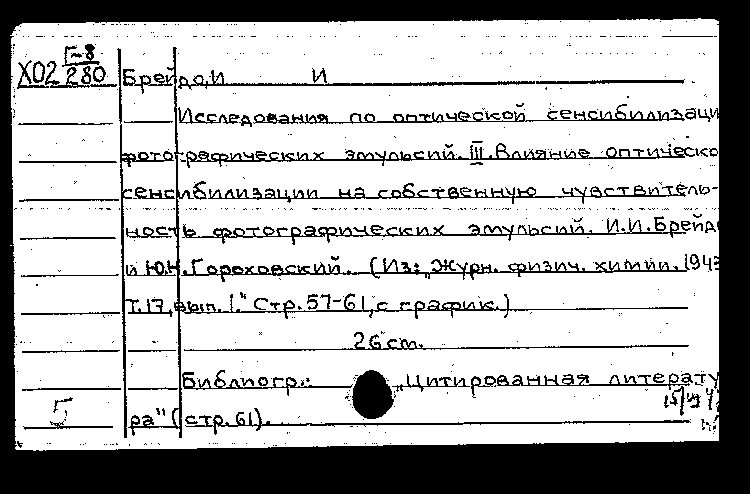 Х02 Г-8/280 Брейдо, И И
Исследования по оптической сенсибилизаци
фотографических эмульсий. III. Влияние оптическо
сенсибилизации на собственную чувствитель-
ность фотографических эмульсий. И.И. Брейдо
и Ю.Н. Гороховский. (Из: „Журн. физич. химии. 1943
Т.17, вып. 1." Стр. 57-61, с график.)
26 cm.
Библиогр.: „Цитированная литерату
ра" (стр. 61).
5